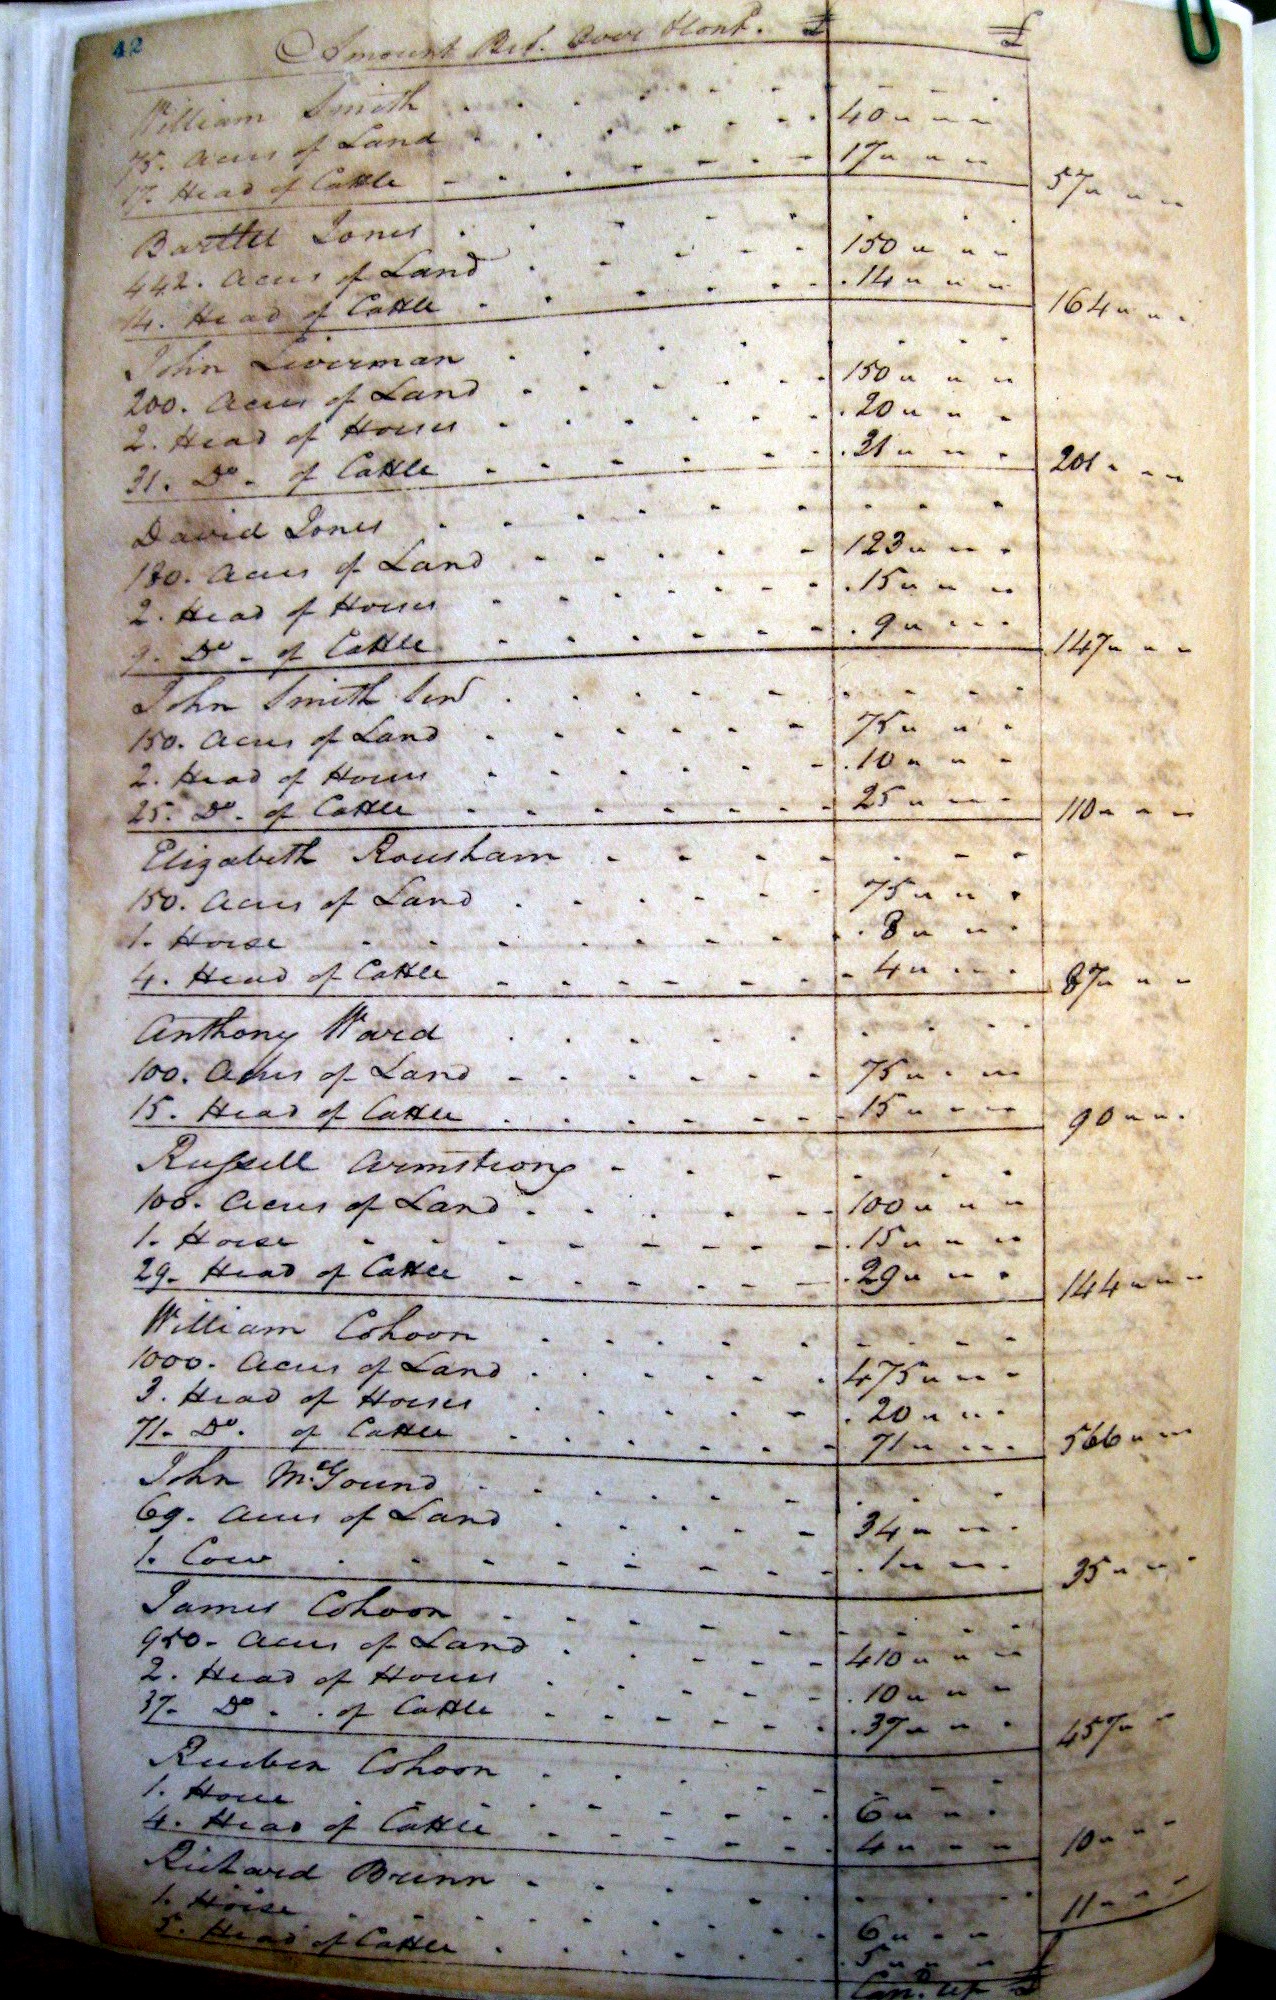 42
Amount Brt. Over £ £
William Smith
75. Acres of Land 40 " " "
17. Head of Cattle 17 " " " 57 " " "
Bartlet Jones
442. Acres of Land 150 " " "
14. Head of Cattle 14 " " " 164 " " "
John Liverman
200. Acres of Land 150 " " "
2. Head of Horses 20 " " "
31. Do. of Cattle 31 " " " 201 " " "
David Jones
180. Acres of Land 123 " " "
2. Head of Horses 15 " " "
9. Do. of Cattle 9 " " " 147 " " "
John Smith Senr
150. Acres of Land 75 " " "
2. Head of Horses 10 " " "
25. Do. of Cattle 25 " " " 110 " " "
Elizabeth Rousham
150. Acres of Land 75 " " "
1. Horse 8 " " "
4. Head of Cattle 4 " " " 87 " " "
Anthony Ward
100. Acres of Land 75 " " "
15. Head of Cattle 15 " " " 90 " " "
Russell Armstrong
100. Acres of Land 100 " " "
1. Horse 15 " " "
29. Head of Cattle 29 " " " 144 " " "
William Cohoon
1000. Acres of Land 475 " " "
3. Head of Horses 20 " " "
71. Do. of Cattle 71 " " " 566 " " "
John McGound
69. Acres of Land 34 " " "
1. Cow 1 " " " 35 " " "
James Cohoon
950. Acres of Land 410 " " "
2. Head of Horses 10 " " "
37. Do. of Cattle 37 " " " 457 " " "
Rueben Cohoon
1. Horse 6 " " "
4. Head of Cattle 4 " " " 10 " " "
Richard Brinn
1. Horse 6 " " "
5. Head of Cattle 5 " " " 11 " " "
Card. up £